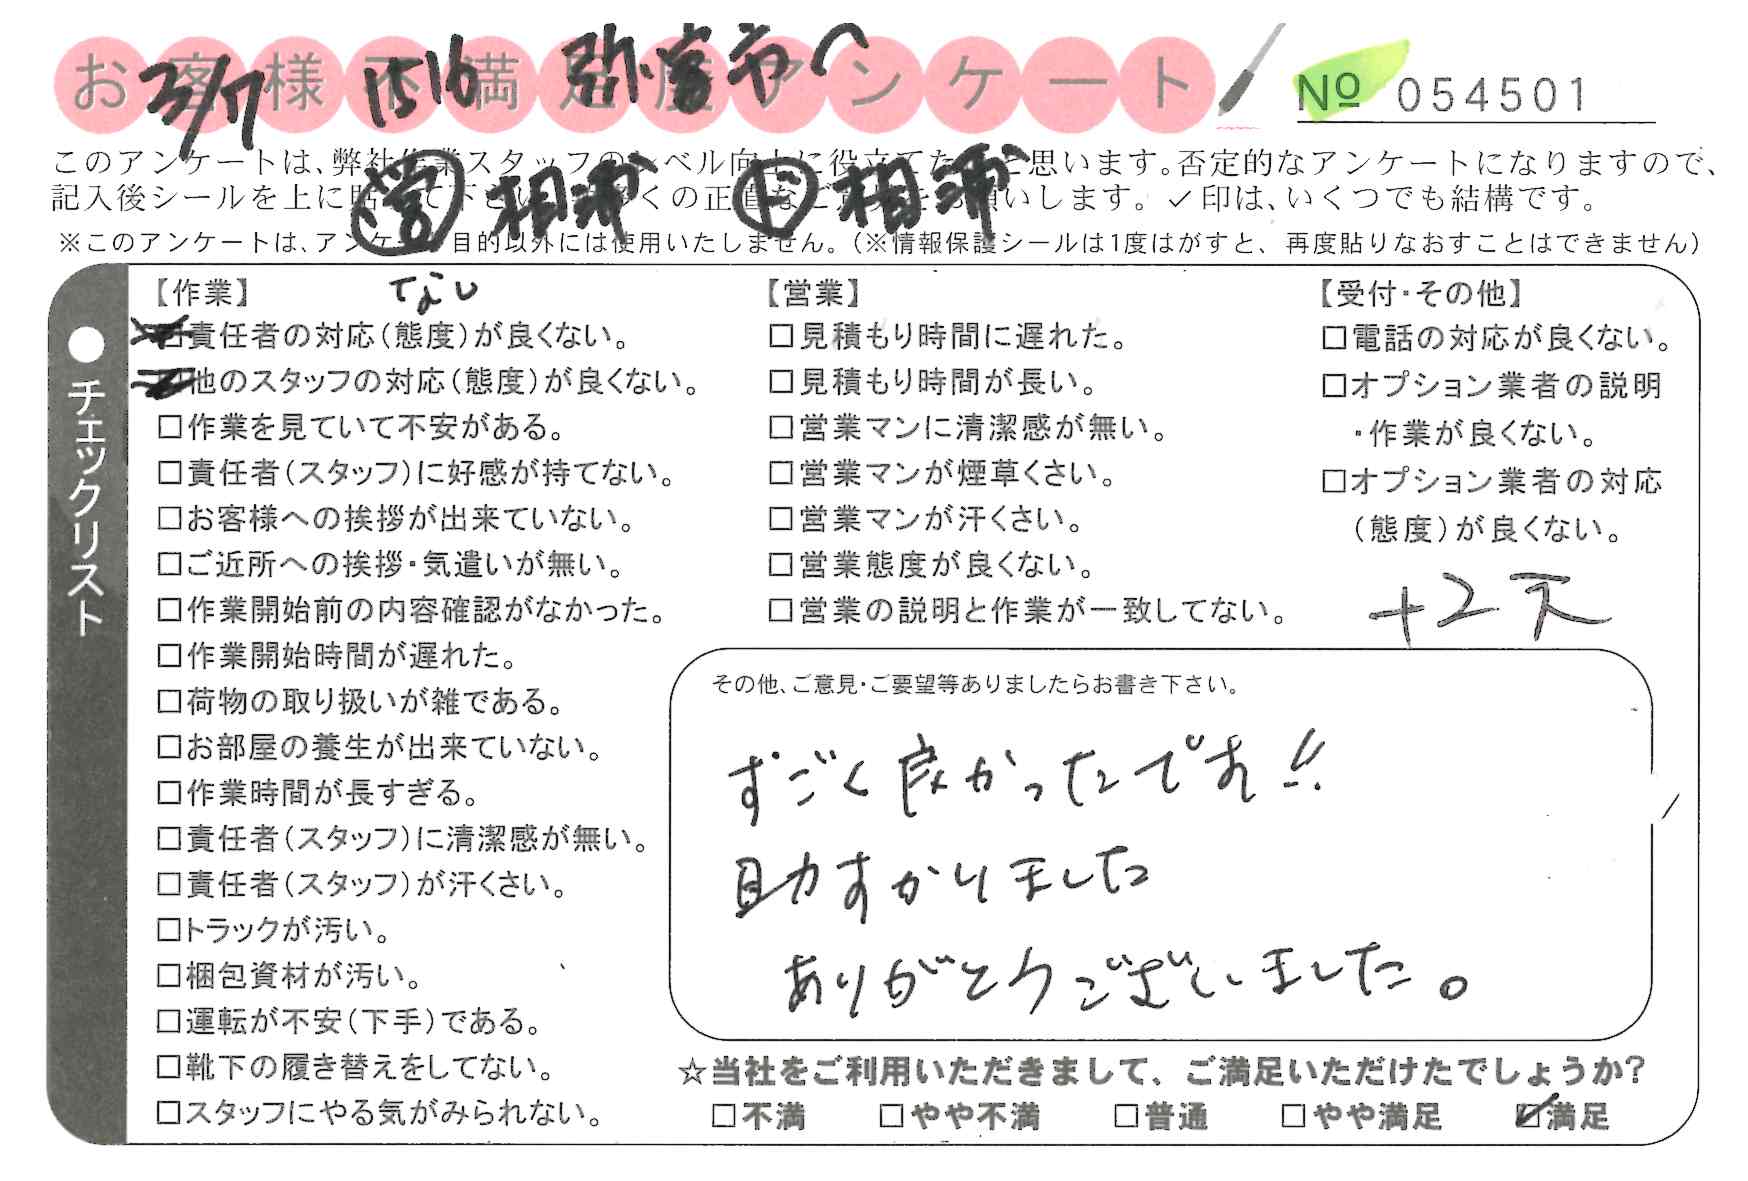 お客様不満足度アンケート
3/7 1516 弥富市へ
№ 054501
このアンケートは、弊社作業スタッフのレベル向上に役立てたいと思います。否定的なアンケートになりますので、
記入後シールを上に貼って下さい。数多くの正直なご意見をお願いします。✓印は、いくつでも結構です。
営 相浦 ド 相浦
※このアンケートは、アンケート目的以外には使用いたしません。(※情報保護シールは1度はがすと、再度貼りなおすことはできません)
●チェックリスト
【作業】 なし
□責任者の対応(態度)が良くない。
□他のスタッフの対応(態度)が良くない。
□作業を見ていて不安がある。
□責任者(スタッフ)に好感が持てない。
□お客様への挨拶が出来ていない。
□ご近所への挨拶・気遣いが無い。
□作業開始前の内容確認がなかった。
□作業開始時間が遅れた。
□荷物の取り扱いが雑である。
□お部屋の養生が出来ていない。
□作業時間が長すぎる。
□責任者(スタッフ)に清潔感が無い。
□責任者(スタッフ)が汗くさい。
□トラックが汚い。
□梱包資材が汚い。
□運転が不安(下手)である。
□靴下の履き替えをしてない。
□スタッフにやる気がみられない。
【営業】
□見積もり時間に遅れた。
□見積もり時間が長い。
□営業マンに清潔感が無い。
□営業マンが煙草くさい。
□営業マンが汗くさい。
□営業態度が良くない。
□営業の説明と作業が一致してない。
【受付・その他】
□電話の対応が良くない。
□オプション業者の説明
・作業が良くない。
□オプション業者の対応
(態度)が良くない。
+2
その他、ご意見・ご要望等ありましたらお書き下さい。
すごく良かったです!!
助すかりました
ありがとうございました。
☆当社をご利用いただきまして、ご満足いただけたでしょうか?
□不満 □やや不満 □普通 □やや満足 ☑満足